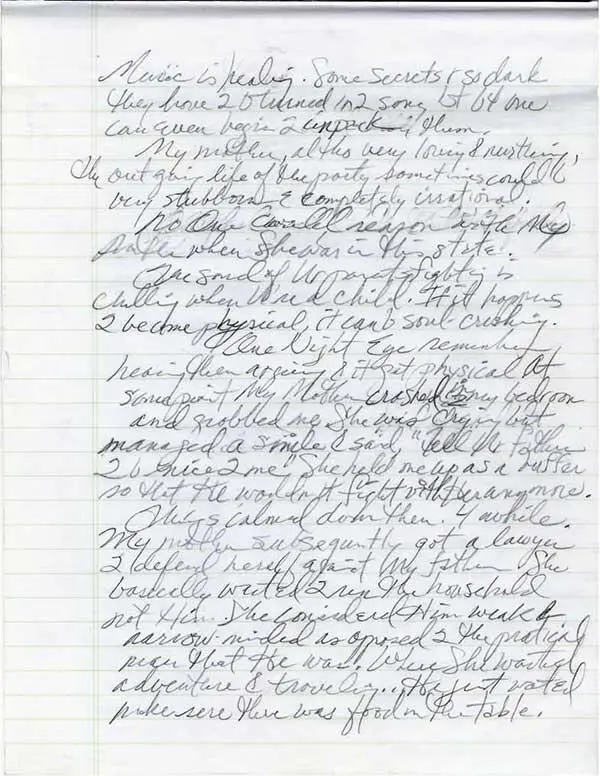 Music is healing. Some secrets r so dark
they have 2 b turned in2 song 1st b4 one
can even begin 2 unpack them.
My mother, altho very loving & nurthing,
the out going life of the party sometimes could b
very stubborn & completely irrational.
No One could reason with My
mother when She was in this state.
The sound of Ur parents fighting is
chilling when U r a child. If it happens
2 become physical, it can b soul-crushing.
One Night Eye remember
hearing them arguing & it got physical At
some point My Mother crashed in2 my bedroom
and grabbed me. She was crying but
managed a smile & said, "Tell Ur Father
2 b nice 2 me" She held me up as a buffer
so that He wouldn't fight with her anymore.
Things calmed down then. 4 awhile.
My mother subsequntly got a lawyer
2 defend herself against My Father. She
basically wanted 2 run the household
not Him. She considerd Him weak &
narrow-minded as opposed 2 the pratical
man that He was. Where She wanted
adventure & traveling... He just wanted
make sure there was food on the table.